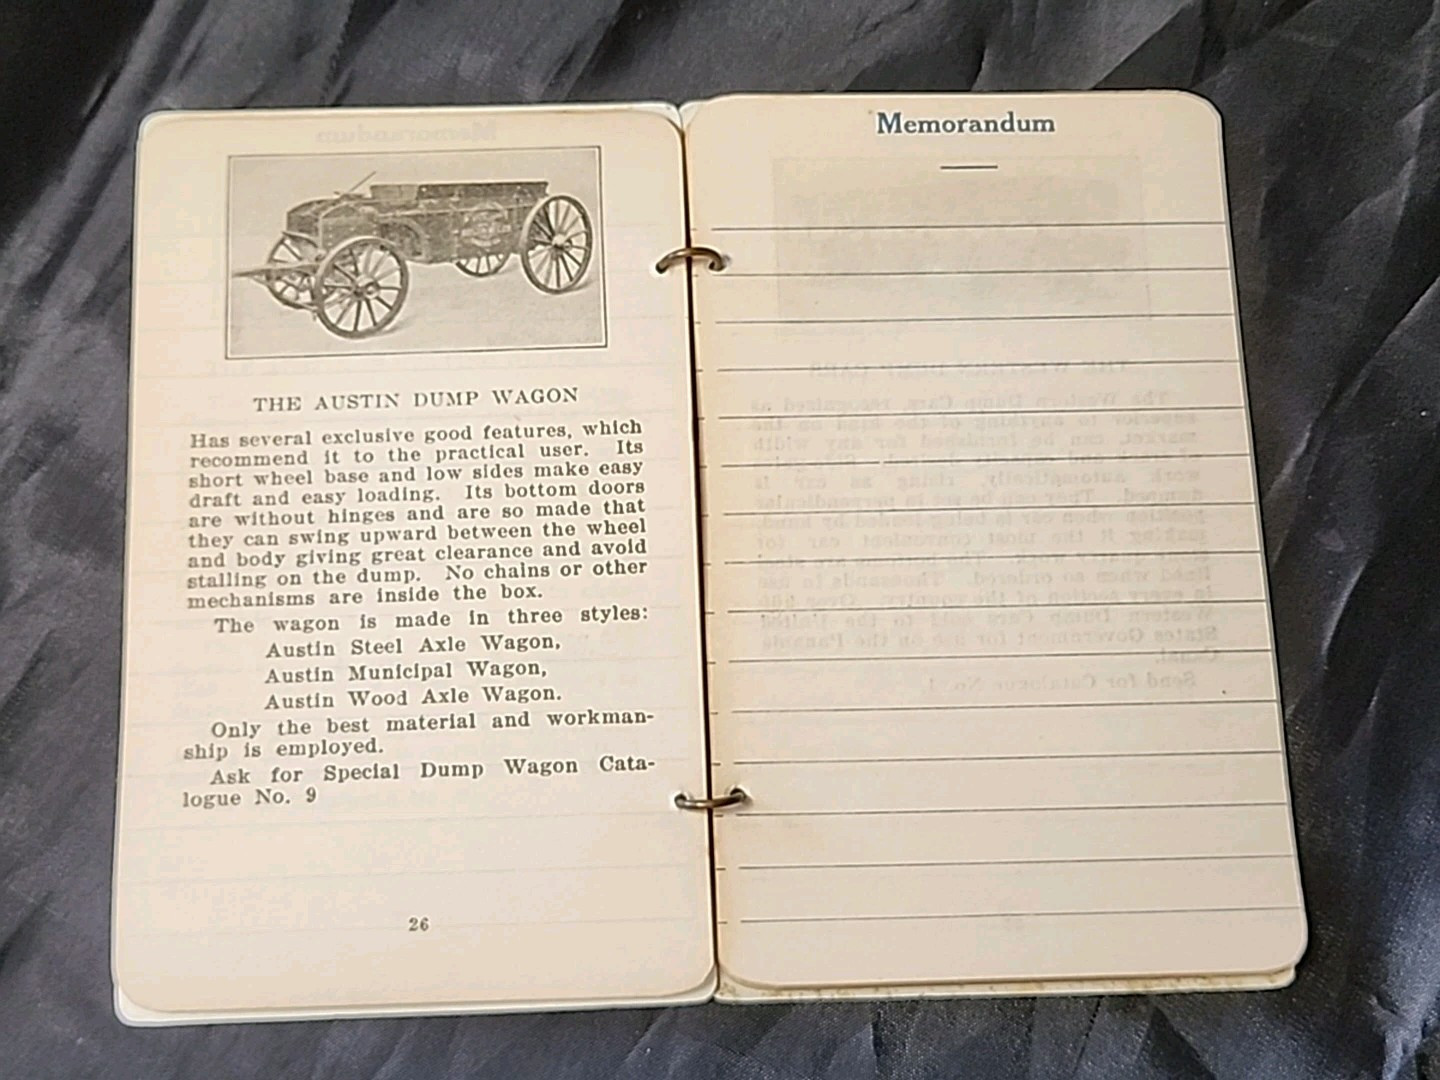 THE AUSTIN DUMP WAGON
Has several exclusive good features, which
recommend it to the practical user. Its
short wheel base and low sides make easy
draft and easy loading. Its bottom doors
are without hinges and are so made that
they can swing upward between the wheel
and body giving great clearance and avoid
stalling on the dump. No chains or other
mechanisms are inside the box.
The wagon is made in three styles:
Austin Steel Axle Wagon,
Austin Municipal Wagon,
Austin Wood Axle Wagon.
Only the best material and workman-
ship is employed.
Ask for Special Dump Wagon Cata-
logue No. 9
26
Memorandum